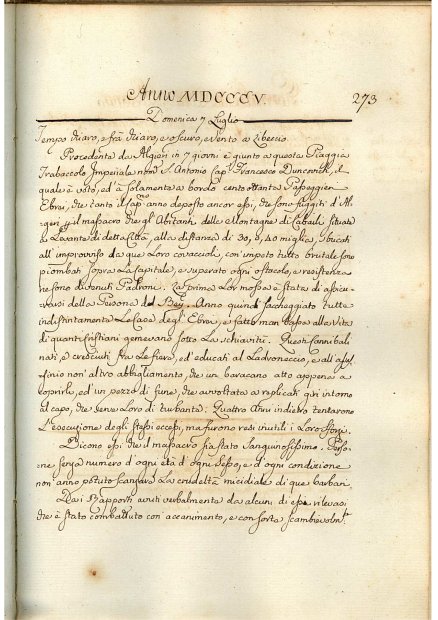 Anno MDCCCV.
273
Domenica 7 Luglio
Tempo chiaro, e frà chiaro, e oscuro, e vento a libeccio
Procedente da Algieri in 7 giorni è giunto a questa Piaggia
Trabaccolo Imperiale nom.º S. Antonio Cap.º Francesco Duncovich, il
quale è vôto, ed à solamente a bordo cento ottanta Passeggieri
Ebrei, che tanto il Cap.º anno deposto ancor essi, che sono fuggiti d'Al-
gieri p il massacro che gl' Abitanti delle Montagne di Cabaili situate
a Levante di detta Città, alla distanza di 30, a 40 miglia, sbucati
all'improvviso da que' Loro covaccioli, con impeto tutto brutale sono
piombati sopra La Capitale, e superato ogni ostacolo, e resistenza
ne sono divenuti Padroni. La prima Lor mossa è stata di assicu-
rarsi della Persona del Bey. Anno quindi saccheggiato tutte
indistintamente Le Case degl' Ebrei, e fatto man bassa alla Vita
di quanti Cristiani gemevano sotto La schiavitù. Questi Cannibali
nati, e cresciuti fra Le fiere, ed educati al Ladroneccio, e all' assas-
sinio non anno altro abbigliamento, che un baracano atto appena a
coprirli, ed un pezzo di fune, che avvoltata a replicati giri intorno
al capo, che serve Loro di turbante. Quattro Anni indietro tentarono
L'esecuzione degli stessi eccessi, ma furono resi inutili i Loro sforzi.
Dicono essi che il massacro sia stato Sanguinosissimo. Perso-
ne senza numero d'ogni età, d'ogni Sesso, e d'ogni condizione
non anno potuto scansare La crudeltà micidiale di que' barbari.
Dai Rapporti avuti verbalmente da alcuni di essi rilevasi
che è stato combattuto con accanimento, e con sorte scambievolm.te